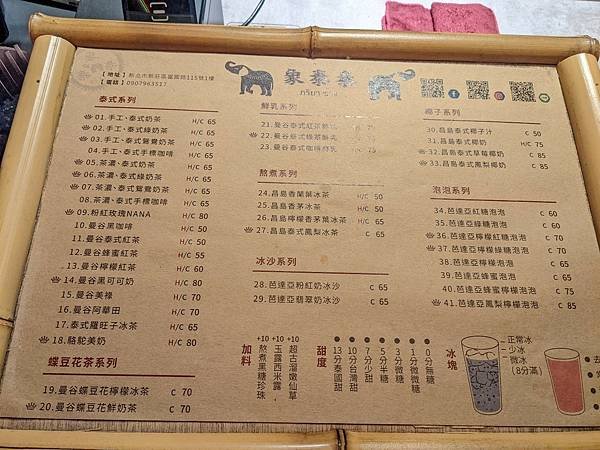 【地址】新北市新莊區富國路115號1樓
【電話】0907963517
象泰奈
泰式系列
01.手工、泰式奶茶 H/C 65
02.手工、泰式綠奶茶 H/C 65
03.手工、泰式鴛鴦奶茶 H/C 65
04.手工、泰式手標咖啡 H/C 65
05.茶濃、泰式奶茶 H/C 65
06.茶濃、泰式綠奶茶 H/C 65
07.茶濃、泰式鴛鴦奶茶 H/C 65
08.茶濃、泰式手標咖啡 H/C 65
09.粉紅玫瑰NANA H/C 80
10.曼谷黑咖啡 H/C 50
11.曼谷泰式紅茶 H/C 50
12.曼谷蜂蜜紅茶 H/C 55
13.曼谷檸檬紅茶 H/C 60
14.曼谷黑可可奶 H/C 80
15.曼谷美祿 H/C 70
16.曼谷阿華田 H/C 70
17.泰式羅旺子冰茶 H/C 65
18.駱駝美奶 H/C 80
蝶豆花茶系列
19.曼谷蝶豆花檸檬冰茶 C 70
20.曼谷蝶豆花鮮奶茶 C 70
鮮乳系列
21.曼谷泰式紅茶鮮
22.曼谷泰式綠茶鮮
23.曼谷泰式咖啡鮮乳 75
熬煮系列
24.昌島香蘭葉冰茶 H/C 50
25.昌島香茅冰茶 H/C 50
26.昌島檸檬香茅葉冰茶 H/C 65
27.昌島泰式鳳梨冰茶 C 65
冰沙系列
28.芭達亞粉紅奶冰沙 C 65
29.芭達亞翡翠奶冰沙 C 65
加料
+10 熬煮黑糖珍珠
+10 玉露西米露
+10 超古溜嫩仙草
甜度
13分泰國甜
10分台灣甜
7分少甜
5分半糖
3分微糖
1分微微糖
0分無糖
椰子系列
30.昌島泰式椰子汁 C 50
31.昌島泰式椰奶 H/C 75
32.昌島泰式草莓椰奶 C 85
33.昌島泰式鳳梨椰奶 C 85
泡泡系列
34.芭達亞紅糖泡泡 C 60
35.芭達亞綠糖泡泡 C 60
36.芭達亞檸檬紅糖泡泡 C 70
37.芭達亞檸檬綠糖泡泡 C 70
38.芭達亞檸檬泡泡 C 65
39.芭達亞蜂蜜泡泡 C 65
40.芭達亞蜂蜜檸檬泡泡 C 75
41.芭達亞鳳梨檸檬泡泡 C 85
冰塊
正常冰
少冰
微冰
(8分滿)